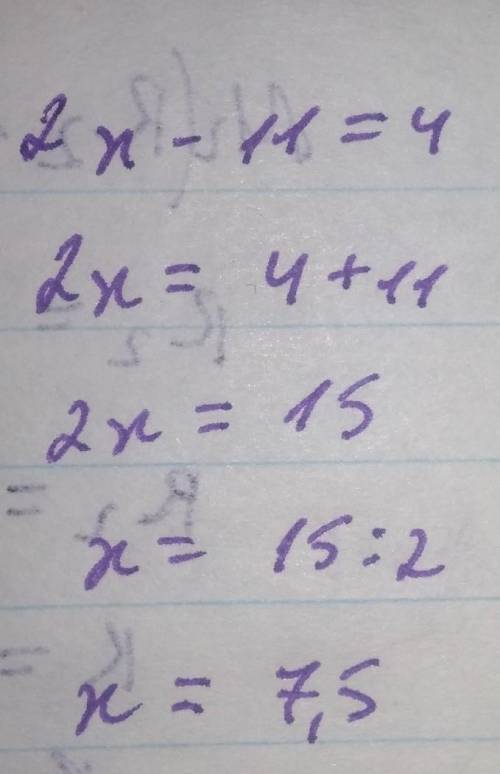 2x - 11 = 4
2x = 4 + 11
2x = 15
x = 15 : 2
x = 7,5